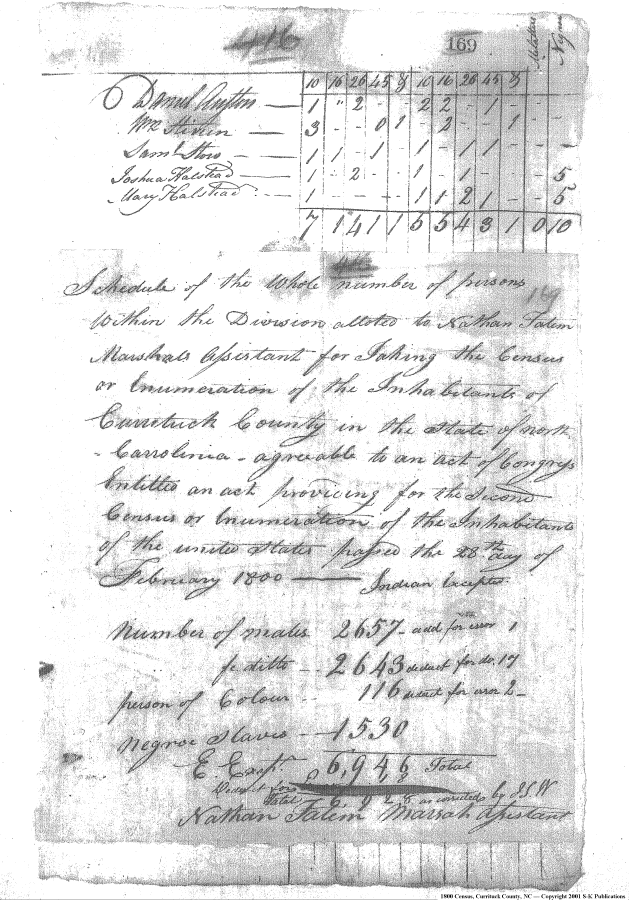 416
169
Mulattoes Negroes
10 16 26 45 & 10 16 26 45 &
Daniel — 1 " 2 - - 2 2 - 1 - -
Wm — 3 - - 0 1 - 2 - - 1 -
Saml — 1 1 - 1 - 1 - 1 1 - -
Joshua Halstead — 1 - 2 - - 1 - 1 - - - 5
Mary Halstead - 1 - - - - 1 1 2 1 - - 5
7 1 4 1 1 5 5 4 3 1 0 10
416
169
Schedule of the Whole number of persons
Within the Division alloted to Nathan Fatem
Marshals Assistant for Taking the Census
or Enumeration of the Inhabitants of
Currituck County in the State of north
- Carrolinia - agreable to an act of Congress
Entitled an act providing for the Second
Census or Enumeration of the Inhabitants
of the united States passed the 28th day of
February 1800 — Indian Excepted
Number of males 2657 - add for error 1
fe ditto -- 2643 deduct for do. 17
person of Colour -- 116 deduct for error 2 -
Negroe Slaves - 1530
E. Exepd 6,946 Total
Deduct for
Total 6,928 as corrected by J.S.W
Nathan Fatem Marsah Assistant
1800 Census, Currituck County, NC — Copyright 2001 S-K Publications